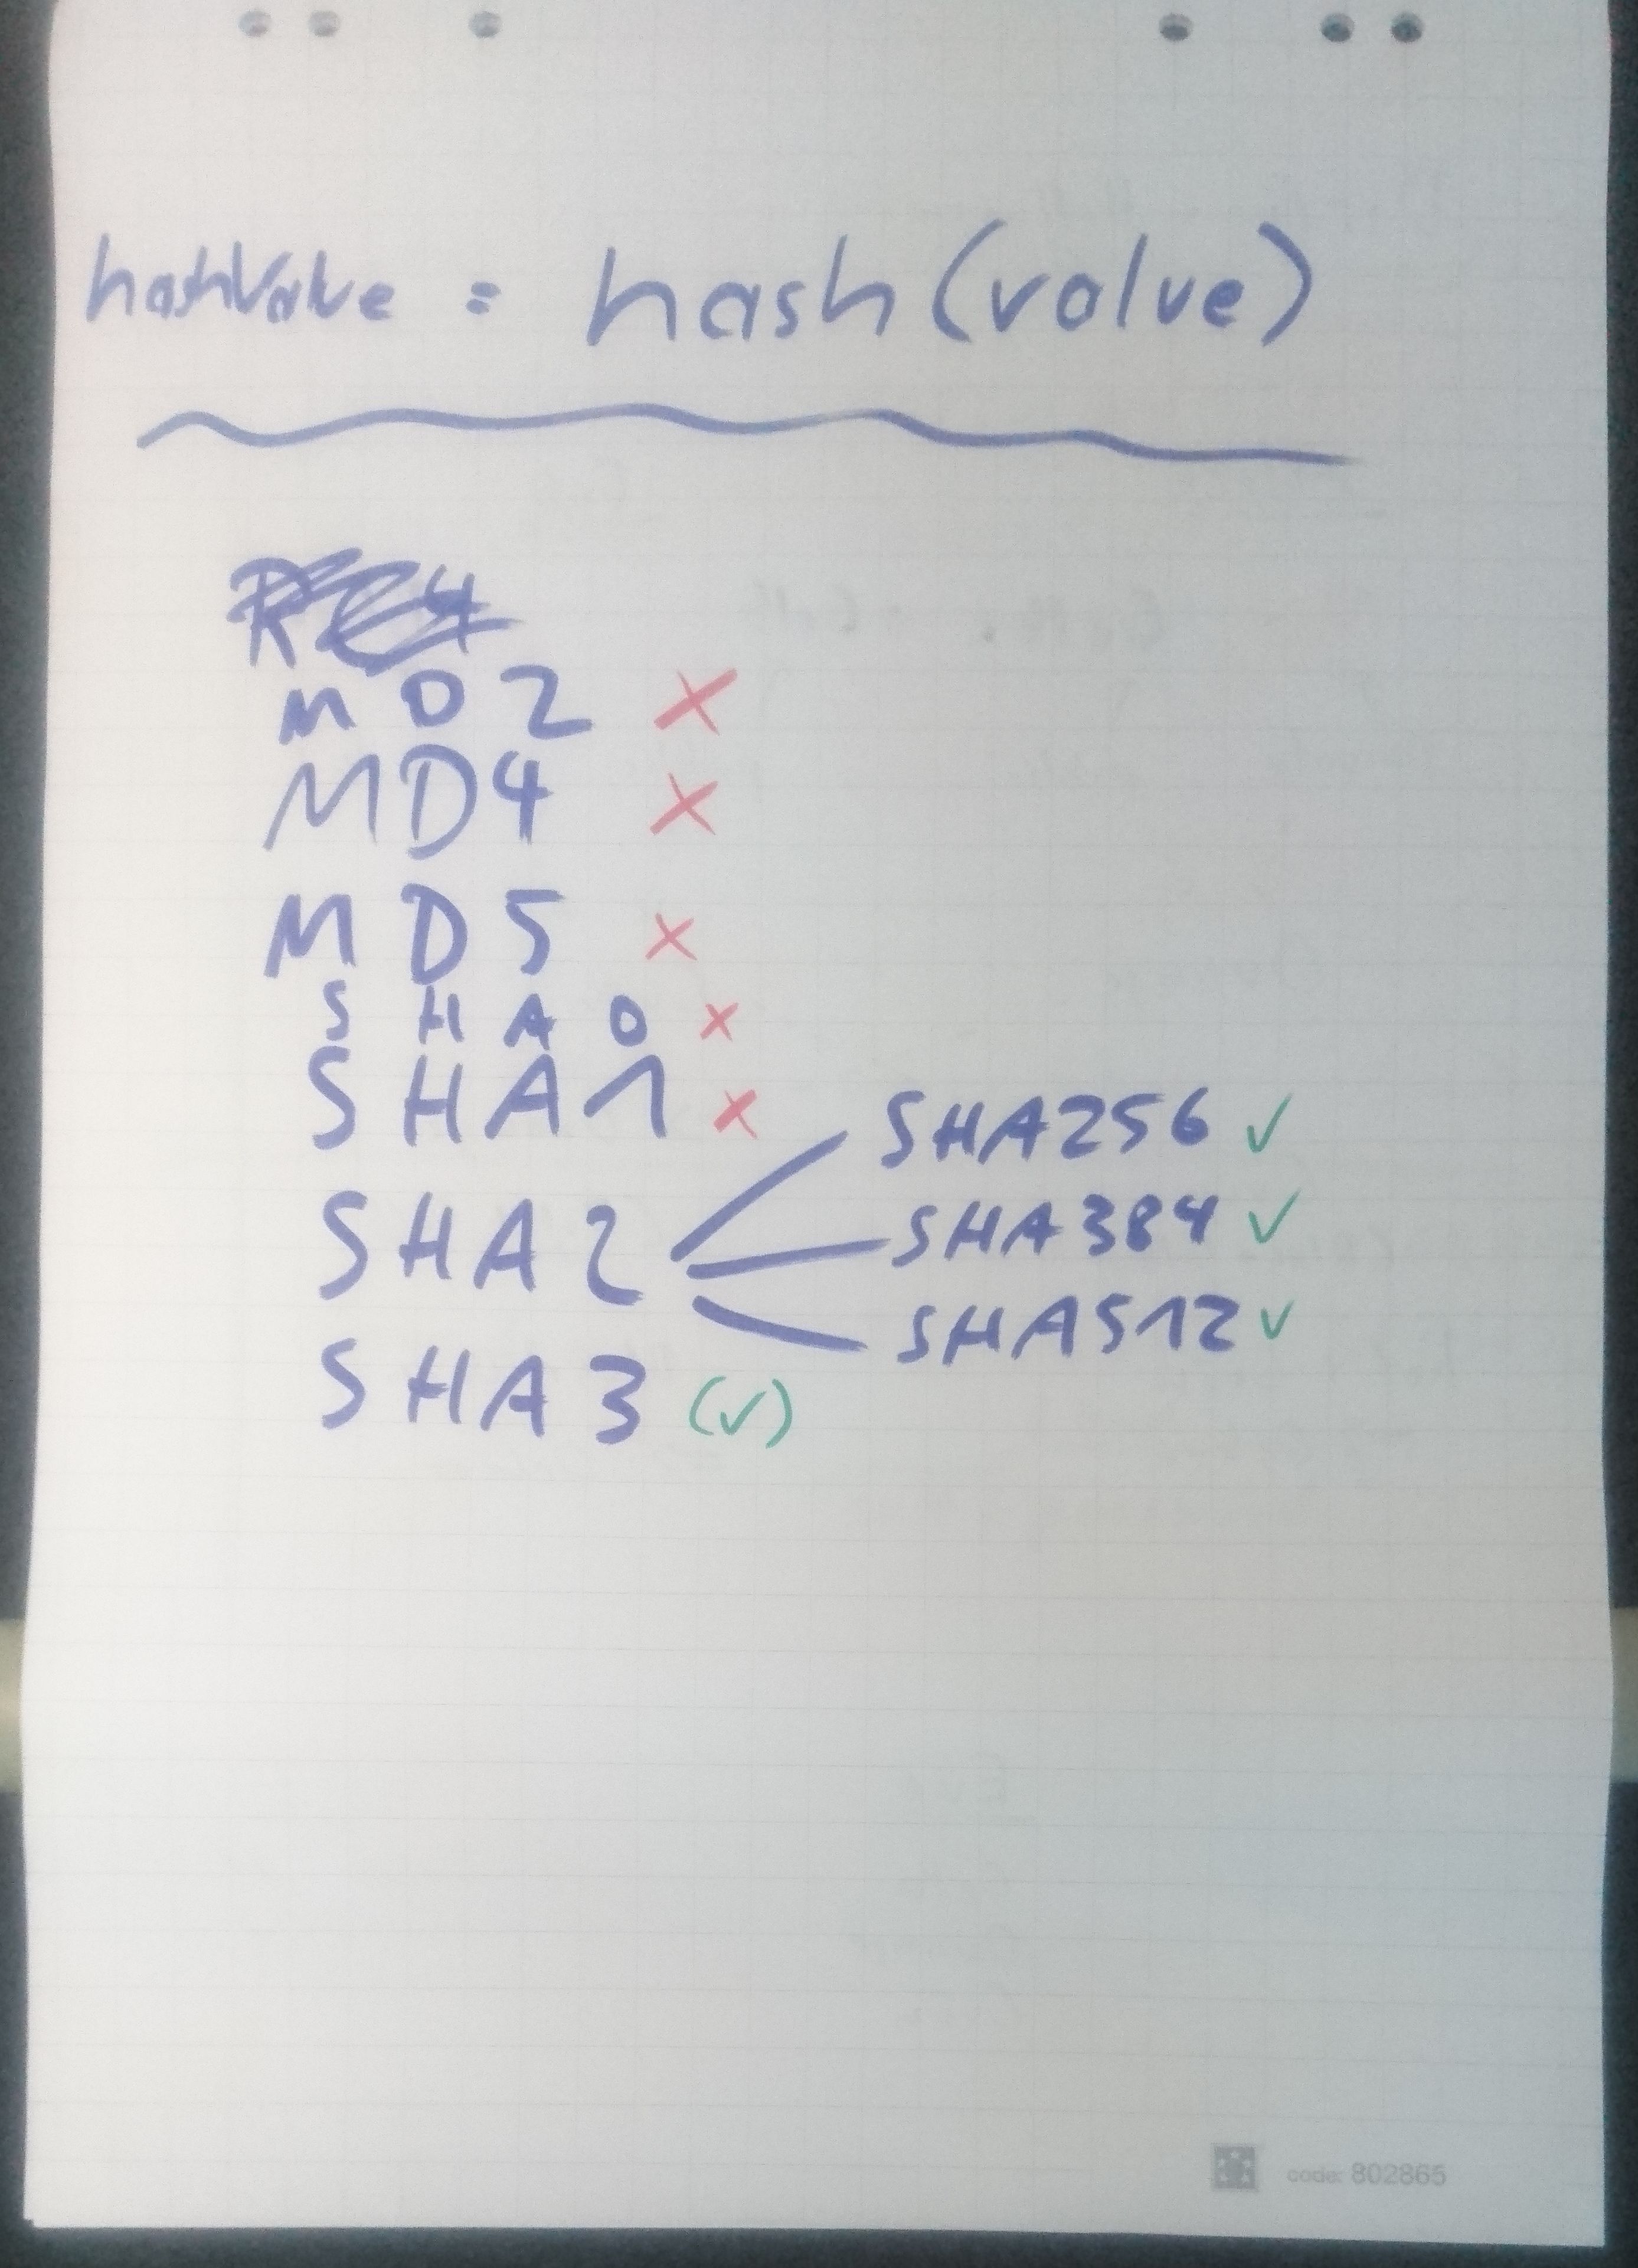 hashValue = hash(value)
MD2 ✗
MD4 ✗
MD5 ✗
SHA0 ✗
SHA1 ✗
SHA256 ✓
SHA2
SHA384 ✓
SHA512 ✓
SHA3 (✓)
code: 802865